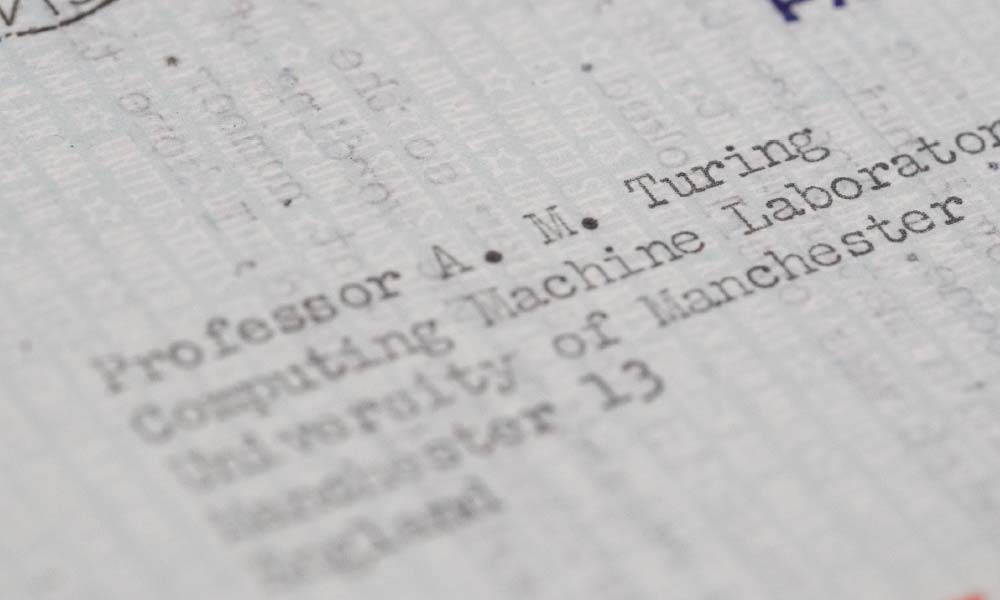 Professor A. M. Turing
Computing Machine Laborator
University of Manchester
Manchester 13
England